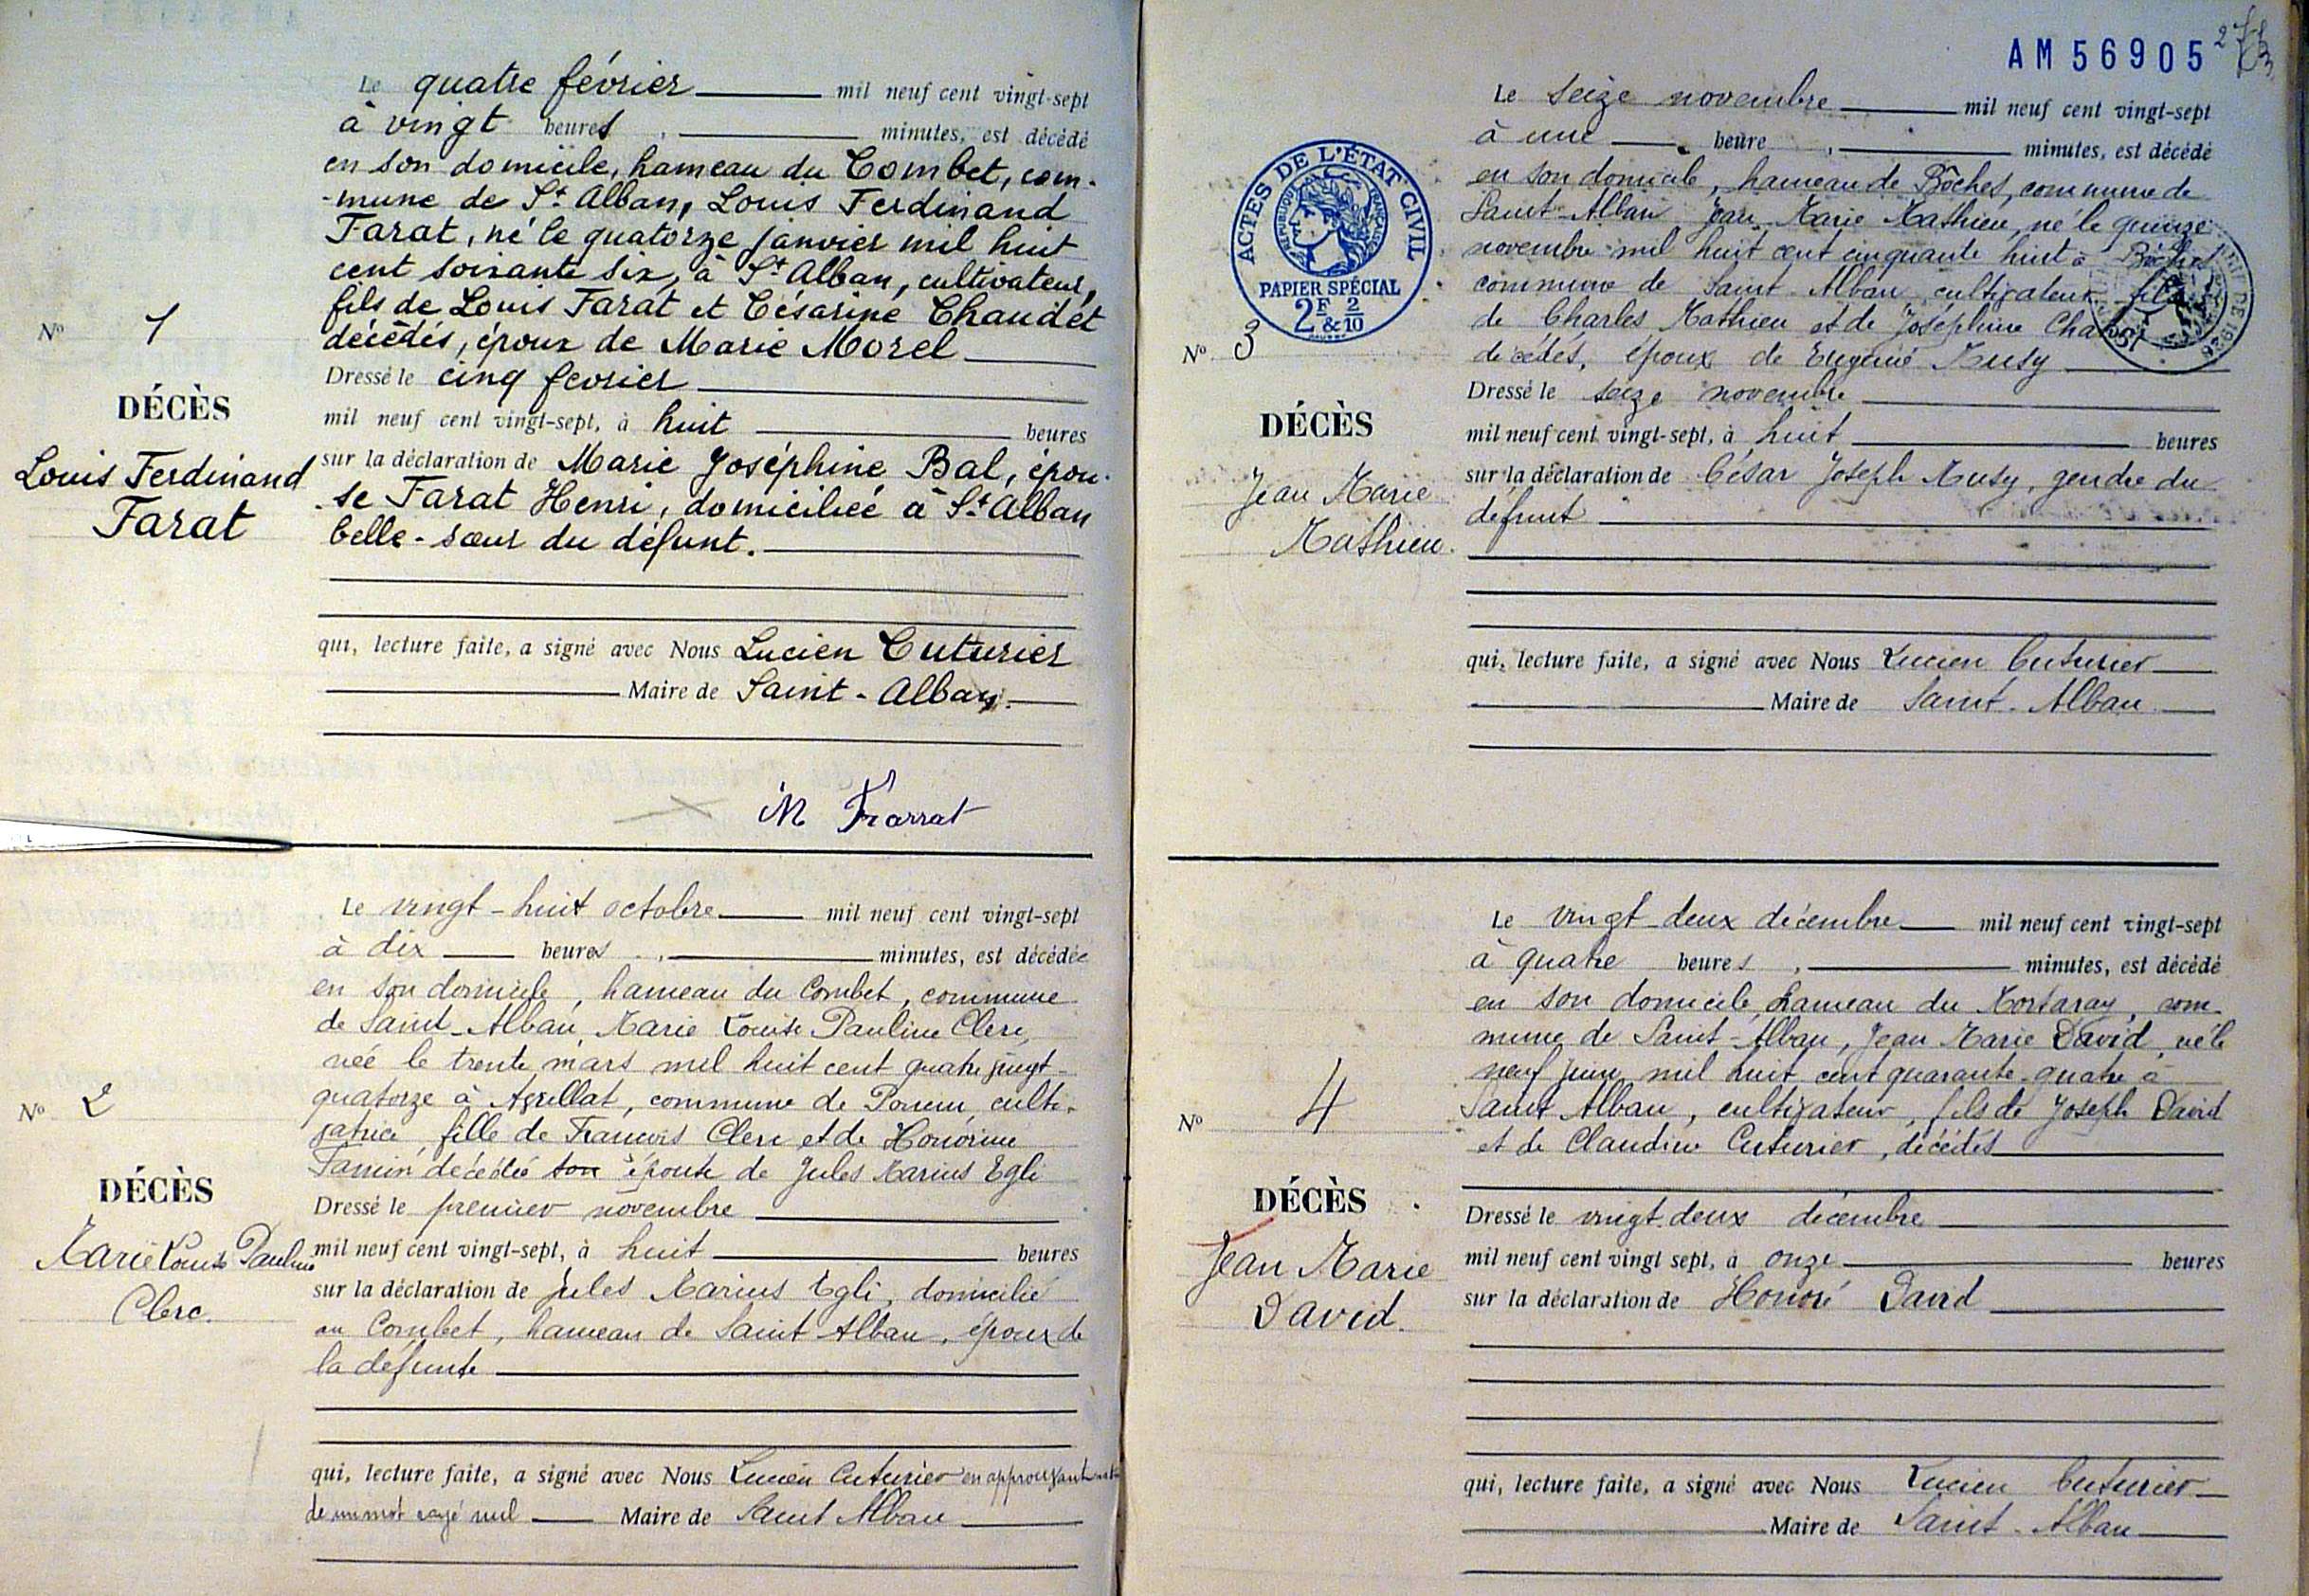 Le quatre février mil neuf cent vingt-sept
à vingt heures, minutes, est décédé
en son domicile, hameau du Combet, com-
-mune de St Alban, Louis Ferdinand
Farat, né le quatorze janvier mil huit
cent soixante six, à St Alban, cultivateur,
fils de Louis Farat et Césarine Chaudet
décédés, époux de Marie Morel
Nº 1
DÉCÈS
Louis Ferdinand
Farat
Dressé le cinq fevrier
mil neuf cent vingt-sept, à huit heures
sur la déclaration de Marie Joséphine Bal, épou-
-se Farat Henri, domiciliée à St Alban
belle-sœur du défunt.
qui, lecture faite, a signé avec Nous Lucien Cuturier
Maire de Saint-Alban.
M Farrat
Le vingt-huit octobre mil neuf cent vingt-sept
à dix heures, minutes, est décédée
en son domicile, hameau du Combet, commune
de Saint-Alban, Marie Louise Pauline Clerc,
née le trente mars mil huit cent quatre vingt-
quatorze à commune de culti-
vatrice, fille de François Clerc et de Honorine
décédée son épouse de Jules Marius Egli
Nº 2
DÉCÈS
Marie Louise Pauline
Clerc.
Dressé le premier novembre
mil neuf cent vingt-sept, à huit heures
sur la déclaration de Jules Marius Egli, domicilié
au Combet, hameau de Saint Alban, époux de
la défunte
qui, lecture faite, a signé avec Nous Lucien Cuturier en approuvant
de un mot rayé nul Maire de Saint Alban
AM 56905
Le seize novembre mil neuf cent vingt-sept
à une heure, minutes, est décédé
en son domicile, hameau de Bôches, commune de
Saint-Alban Jean Marie Mathieu, né le quinze
novembre mil huit cent cinquante huit à Bôches
commune de Saint-Alban, cultivateur, fils
de Charles Mathieu et de Joséphine
décédés, époux de Eugénie Musy
ACTES DE L'ÉTAT CIVIL
RÉPUBLIQUE FRANÇAISE
PAPIER SPÉCIAL
2F & 2/10
Nº 3
DÉCÈS
Jean Marie
Mathieu.
Dressé le seize novembre
mil neuf cent vingt-sept, à huit heures
sur la déclaration de César Joseph Musy, gendre du
défunt
qui, lecture faite, a signé avec Nous Lucien Cuturier
Maire de Saint-Alban
Le vingt-deux décembre mil neuf cent vingt-sept
à quatre heures, minutes, est décédé
en son domicile, hameau du Mortaray, com-
mune de Saint-Alban, Jean Marie David, né le
neuf juin mil huit cent quarante-quatre à
Saint Alban, cultivateur, fils de Joseph David
et de Claudine Cuturier, décédés
Nº 4
DÉCÈS
Jean Marie
David.
Dressé le vingt-deux décembre
mil neuf cent vingt sept, à onze heures
sur la déclaration de Honoré David
qui, lecture faite, a signé avec Nous Lucien Cuturier
Maire de Saint-Alban